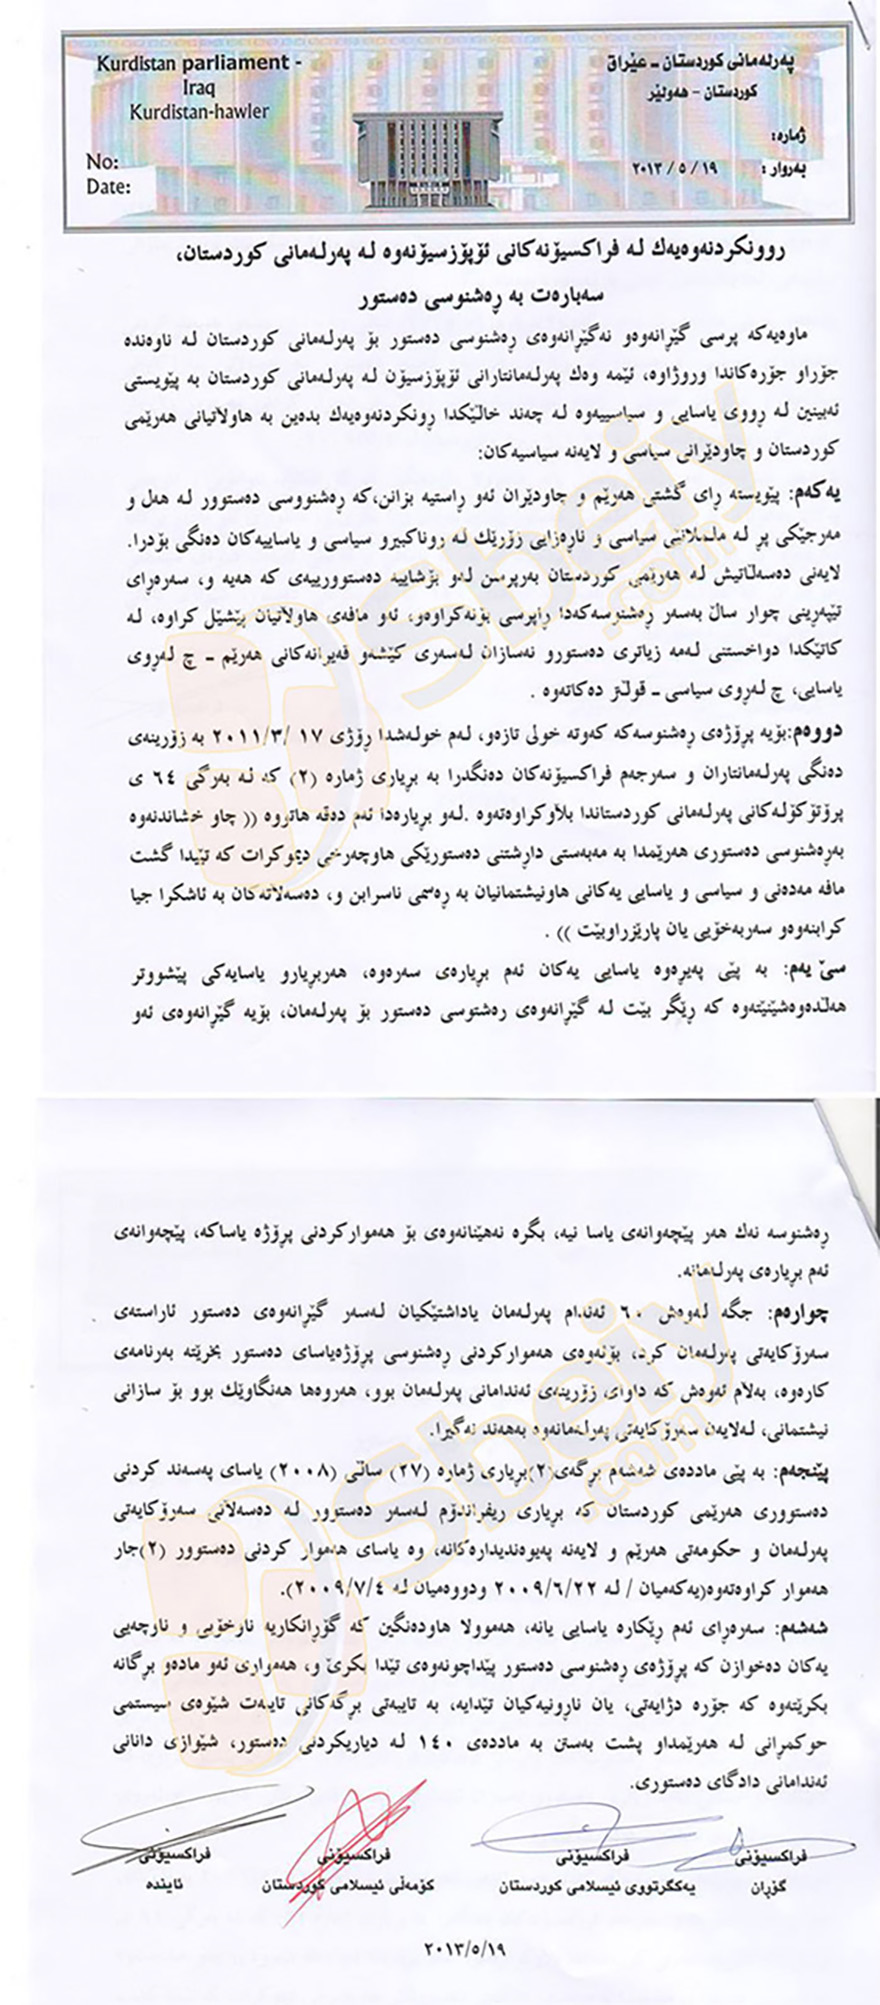 Kurdistan parliament -
Iraq
Kurdistan-hawler
No:
Date:
پەرلەمانی کوردستان - عێراق
کوردستان - هەولێر
ژمارە:
بەروار: ١٩ / ٥ / ٢٠١٣
روونکردنەوەیەك لە فراکسیۆنەکانی ئۆپۆزسیۆنەوە لە پەرلەمانی کوردستان،
سەبارەت بە ڕەشنوسی دەستور
ماوەیەکە پرسی گێڕانەوەو نەگێڕانەوەی ڕەشنوسی دەستور بۆ پەرلەمانی کوردستان لە ناوەندە
جۆراو جۆرەکاندا وروژاوە، ئێمە وەك پەرلەمانتارانی ئۆپۆزسیۆن لە پەرلەمانی کوردستان بە پێویستی
ئەبینین لە ڕووی یاسایی و سیاسییەوە لە چەند خاڵێکدا ڕونکردنەوەیەك بدەین بە هاوڵاتیانی هەرێمی
کوردستان و چاودێرانی سیاسی و لایەنە سیاسیەکان:
یەکەم: پێویستە ڕای گشتی هەرێم و چاودێران ئەو ڕاستیە بزانن،کە ڕەشنووسی دەستوور لە هەل و
مەرجێکی پڕ لە ململانێی سیاسی و نارەزایی زۆرێك لە روناکبیرو سیاسی و یاساییەکان دەنگی بۆدرا.
لایەنی دەسەڵاتیش لە هەرێمی کوردستان بەرپرسن لەو بۆشاییە دەستوورییەی کە هەیە و، سەرەڕای
تێپەڕینی چوار ساڵ بەسەر ڕەشنوسەکەدا ڕاپرسی بۆنەکراوەو، ئەو مافەی هاوڵاتیان پێشێل کراوە، لە
کاتێکدا دواخستنی لەمە زیاتری دەستورو نەسازان لەسەری کێشەو قەیرانەکانی هەرێم - چ لەڕوی
یاسایی، چ لەڕوی سیاسی - قوڵتر دەکاتەوە .
دووەم:بۆیە پڕۆژەی ڕەشنوسەکە کەوتە خولی تازەو، لەم خولەشدا ڕۆژی ١٧ /٣/ ٢٠١١ بە زۆرینەی
دەنگی پەرلەمانتاران و سەرجەم فراکسیۆنەکان دەنگدرا بە بڕیاری ژمارە (٢) کە لە بەرگی ٦٤ ی
پرۆتۆکۆلەکانی پەرلەمانی کوردستاندا بڵاوکراوەتەوە .لەو بڕیارەدا ئەم دەقە هاتووە (( چاو خشاندنەوە
بەڕەشنوسی دەستوری هەرێمدا بە مەبەستی داڕشتنی دەستورێکی هاوچەرخی دیموکرات کە تێیدا گشت
مافە مەدەنی و سیاسی و یاسایی یەکانی هاونیشتمانیان بە ڕەسمی ناسرابن و، دەسەلاتەکان بە ئاشکرا جیا
کرابنەوەو سەربەخۆیی یان پارێزراوبێت )) .
سێ یەم: بە پێی پەیڕەوە یاسایی یەکان ئەم بڕیارەی سەرەوە، هەربڕیارو یاسایەکی پێشووتر
هەڵدەوەشێنێتەوە کە ڕێگر بێت لە گێڕانەوەی ڕەشنوسی دەستور بۆ پەرلەمان، بۆیە گێڕانەوەی ئەو
ڕەشنوسە نەك هەر پێچەوانەی یاسا نیە، بگرە نەهێنانەوەی بۆ هەموارکردنی پڕۆژە یاساکە، پێچەوانەی
ئەم بڕیارەی پەرلەمانە.
چوارەم: جگە لەوەش ٦٠ ئەندام پەرلەمان یاداشتێکیان لەسەر گێڕانەوەی دەستور ئاراستەی
سەرۆکایەتی پەرلەمان کرد، بۆئەوەی هەموارکردنی ڕەشنوسی پڕۆژەیاسای دەستور بخرێتە بەرنامەی
کارەوە، بەلام ئەوەش کە داوای زۆرینەی ئەندامانی پەرلەمان بوو، هەروەها هەنگاوێك بوو بۆ سازانی
نیشتمانی، لەلایەن سەرۆکایەتی پەرلەمانەوە بەهەند نەگیرا.
پێنجەم: بە پێی ماددەی شەشەم بڕگەی(٢)بڕیاری ژمارە (٢٧) ساڵی (٢٠٠٨) یاسای پەسەند کردنی
دەستووری هەرێمی کوردستان کە بڕیاری ریفراندۆم لەسەر دەستوور لە دەسەلانی سەرۆکایەتی
پەرلەمان و حکومەتی هەرێم و لایەنە پەیوەندیدارەکانە، وە یاسای هەموار کردنی دەستوور (٢)جار
هەموار کراوەتەوە(یەکەمیان / لە ٢٠٠٩/٦/٢٢ ودووەمیان لە ٢٠٠٩/٧/٤).
شەشەم: سەرەڕای ئەم ڕێکارە یاسایی یانە، هەموولا هاودەنگین کە گۆڕانکاریە نارخۆیی و نارچەیی
یەکان دەخوازن کە پڕۆژەی ڕەشنوسی دەستور پێداچونەوەی تێدا بکرێ و، هەمواری ئەو مادەو بڕگانە
بکرێتەوە کە جۆرە دژایەتی، یان ناڕونیەکیان تێدایە، بە تایبەتی بڕگەکانی تایبەت شێوەی سیستمی
حوکمڕانی لە هەرێمداو پشت بەستن بە ماددەی ١٤٠ لە دیاریکردنی دەستور، شێوازی دانانی
ئەندامانی دادگای دەستوری.
فراکسیۆنی فراکسیۆنی فراکسیۆنی فراکسیۆنی
گۆڕان یەکگرتووی ئیسلامی کوردستان کۆمەڵی ئیسلامی کوردستان ئایندە
٢٠١٣/٥/١٩
Sbeiy
.com
Sbeiy
.com